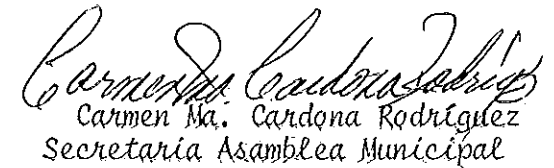 Carmen Ma. Cardona Rodríguez
Carmen Ma. Cardona Rodríguez
Secretaria Asamblea Municipal